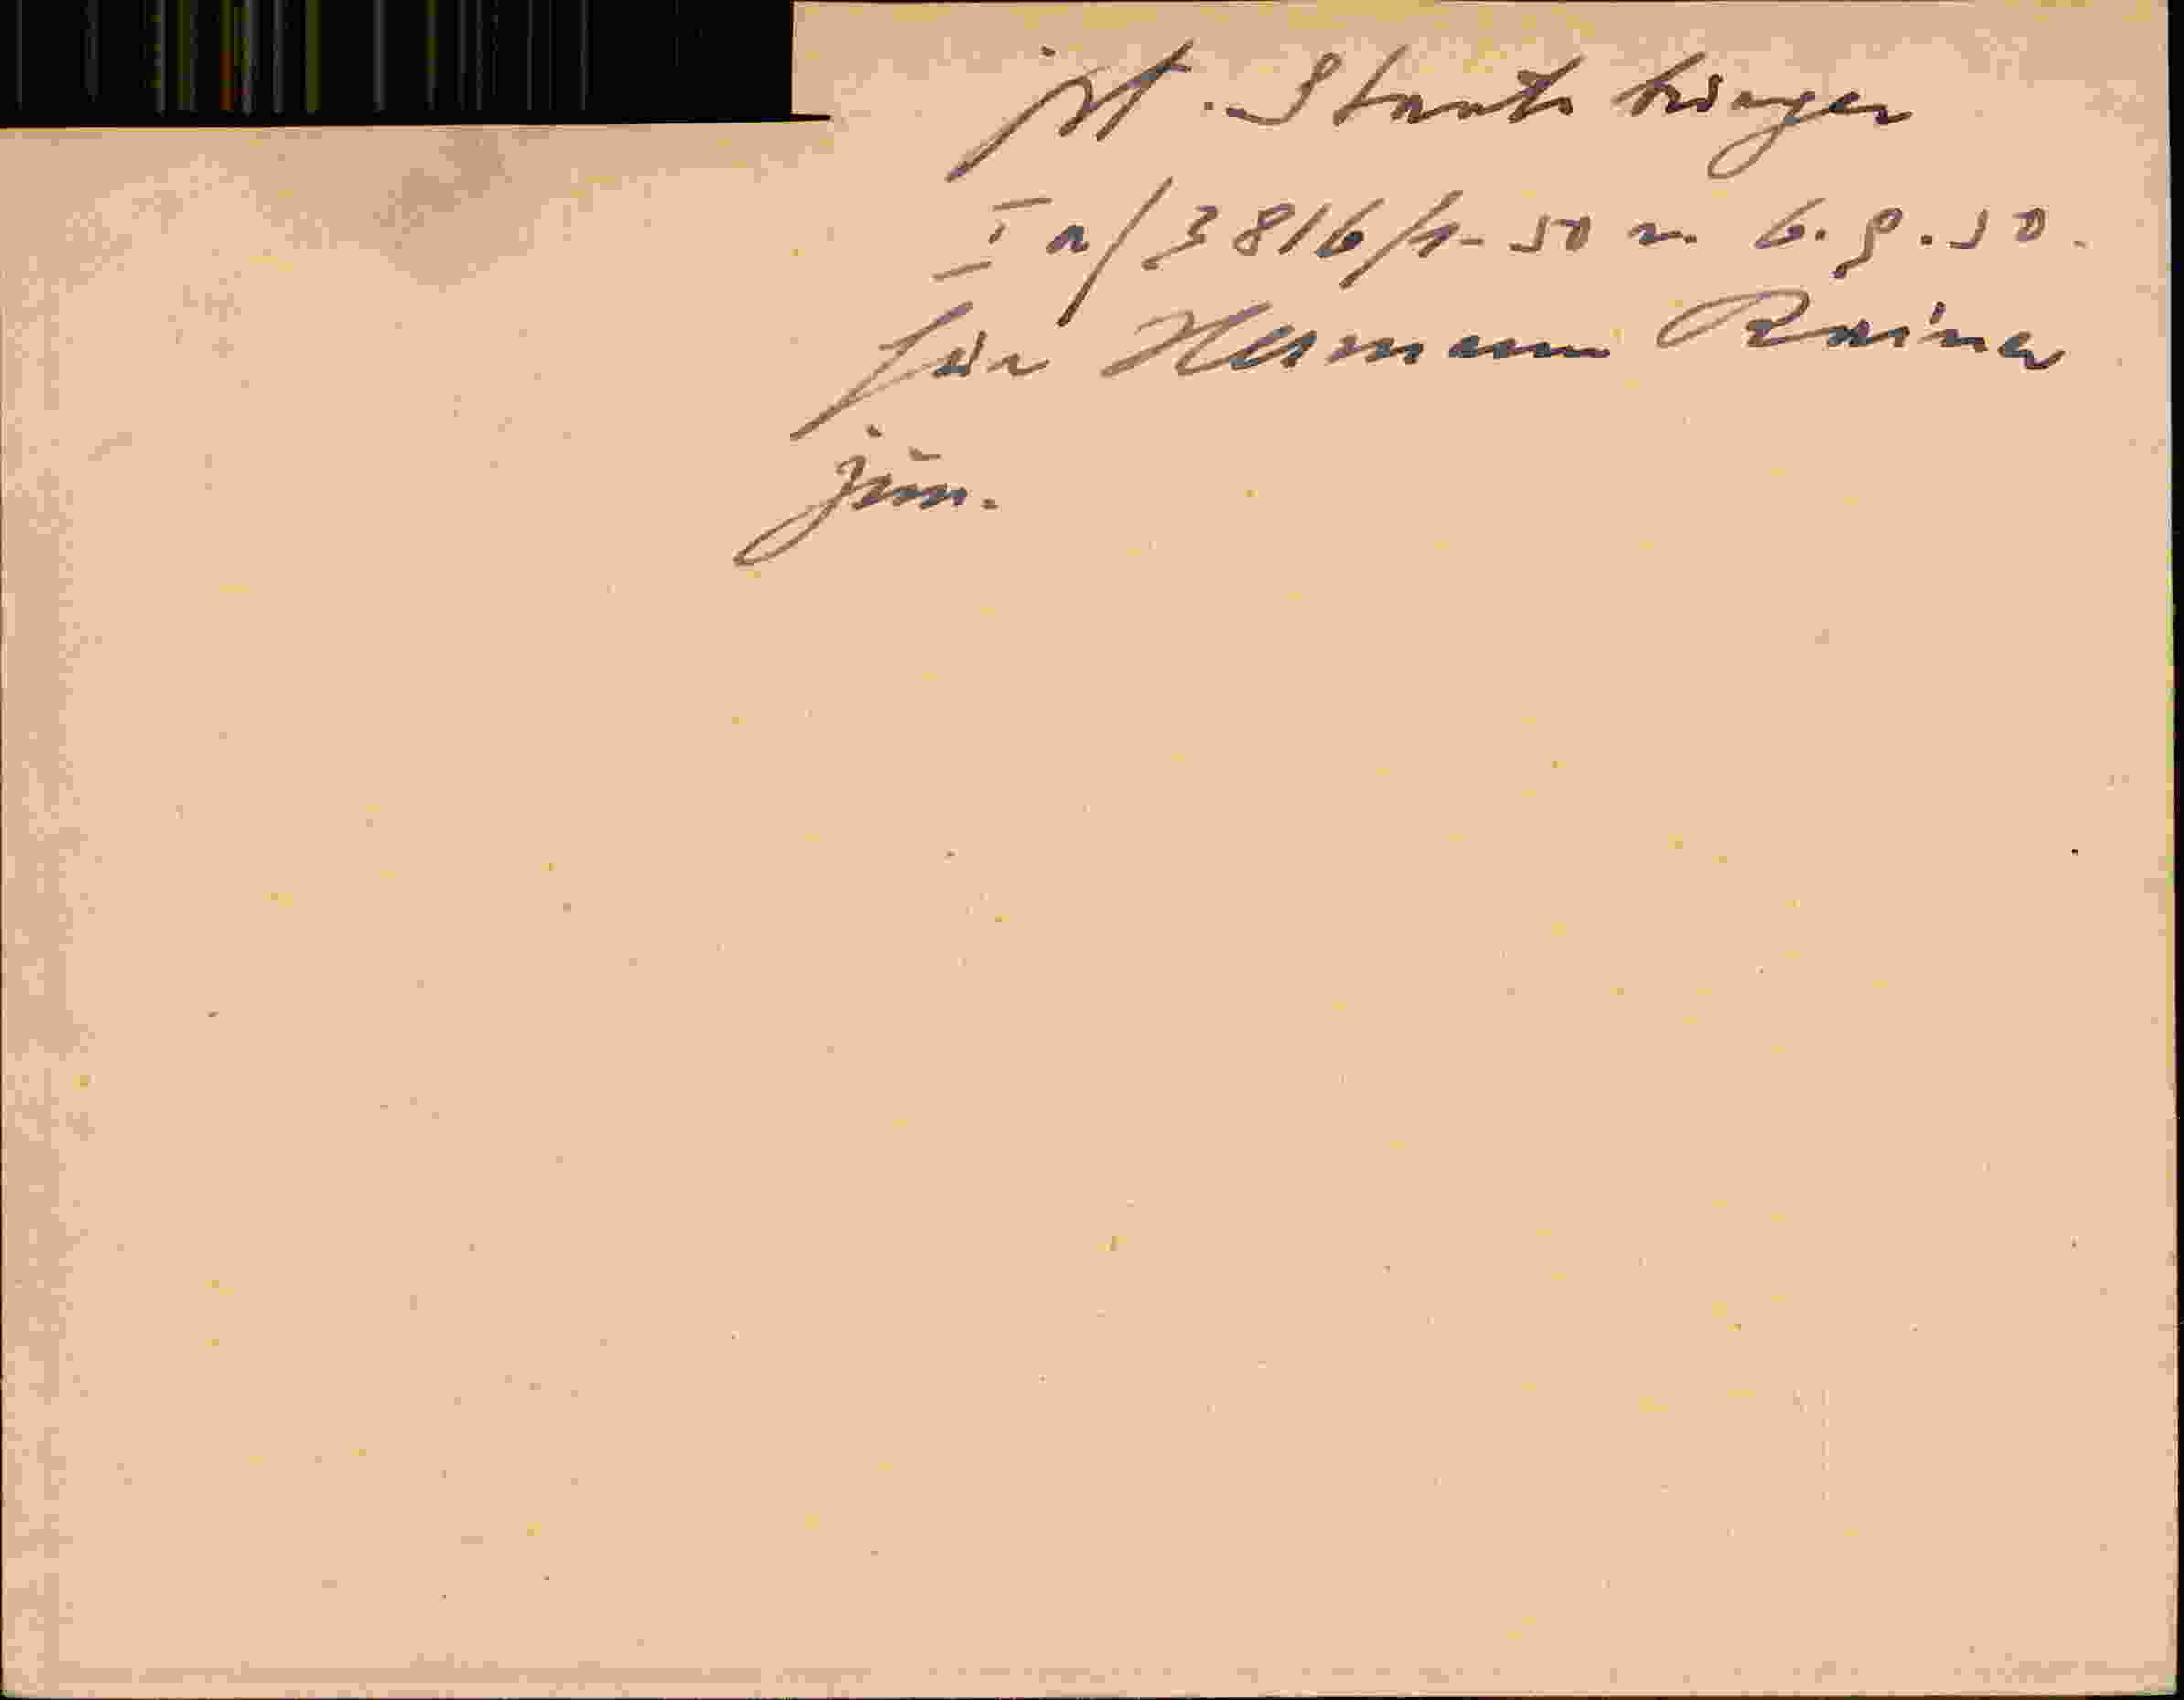 öst. Staatsbürger
Ia/3816/1-50 v. 6.9.50.
für Hermann Rainer
jun.